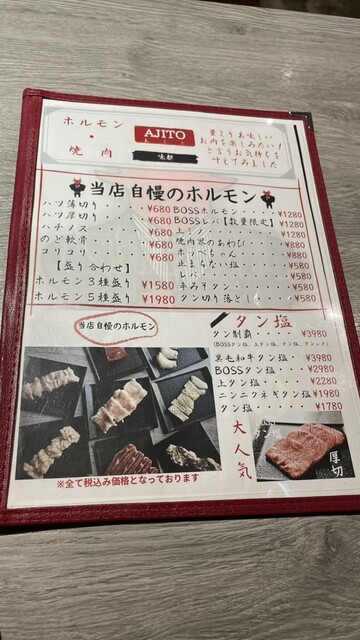 ホルモン
・
焼肉
AJITO
あじと
味都
量より美味しい
お肉を楽しみたい！
と言うお気持ちを
叶えてみました
当店自慢のホルモン
ハツ薄切り・・・¥680
ハツ厚切り・・・¥680
ハチノス・・・¥680
のど軟骨・・・¥680
コリコリ・・・¥680
【盛り合わせ】
ホルモン3種盛り ¥1580
ホルモン5種盛り ¥1980
BOSSホルモン・・・¥1280
BOSSレバ【数量限定】¥1280
上ミノ・・・¥1280
焼肉界のあわび・・・¥880
ホッペちゃん・・・¥880
止まらない塩・・・¥580
しびれ・・・¥580
牛みそタン・・・¥580
タン切り落とし・・・¥580
当店自慢のホルモン
タン塩
タン制覇・・・¥3980
黒毛和牛タン塩・・・¥3980
BOSSタン塩・・・¥2980
上タン塩・・・¥2280
ニンニクネギタン塩 ¥1980
タン塩・・・¥1780
大人気
厚切
※全て税込み価格となっております